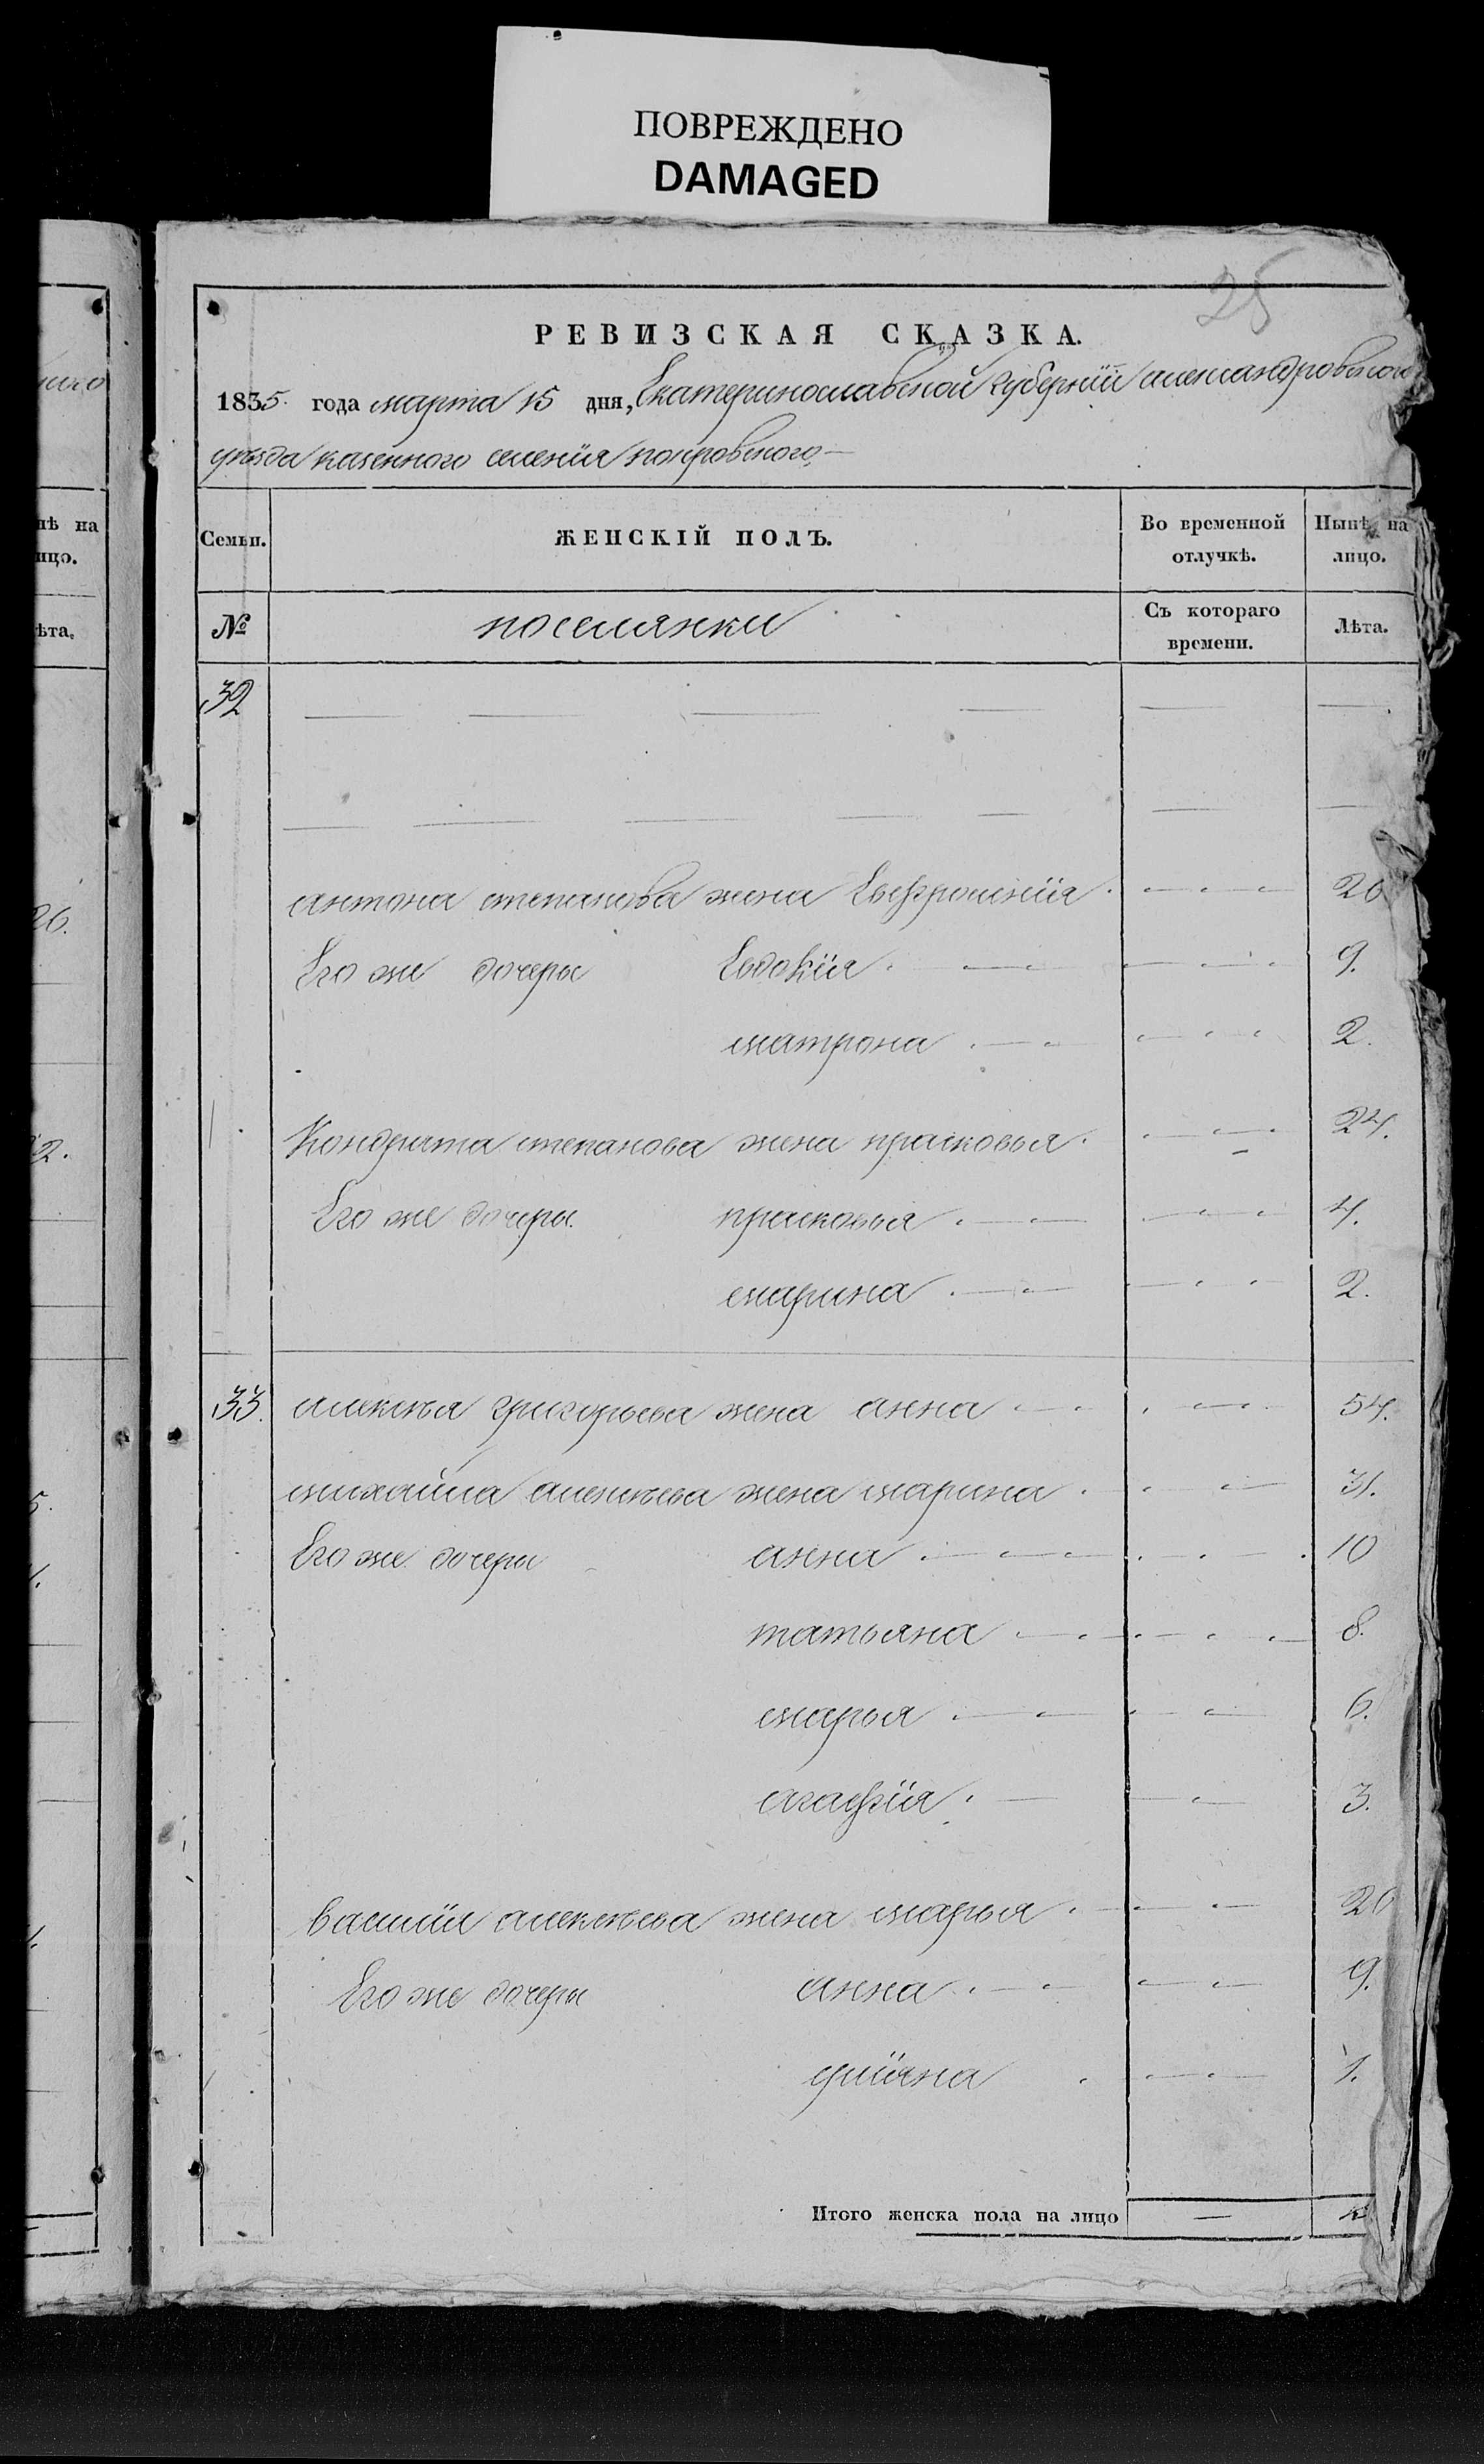 ПОВРЕЖДЕНО
DAMAGED
25
РЕВИЗСКАЯ СКАЗКА.
1835. года марта 15 дня, Екатеринославской губернїи александровского
уѣзда казенного селенїя покровского
Семьи. ЖЕНСКІЙ ПОЛЪ. Во временной отлучкѣ. Нынѣ на лицо.
№ поселянки Съ котораго времени. Лѣта.
32
антона степанова жена Евфросинїя 26
Его же дочеры Евдокїя 9.
матрона 2.
Кондрата степанова жена прасковья 24.
Его же дочеры прасковья 4.
марина 2.
33. алексѣя григорьева жена анна 54.
михайла алексѣева жена марина 31.
Его же дочеры анна 10
татьяна 8.
марья 6.
агафїя 3.
василїя алексѣева жена марья 26
Его же дочеры анна 9.
улїяна 1.
Итого женска пола на лицо —
нѣ на
ицо.
ѣта.
26.
2.
5.